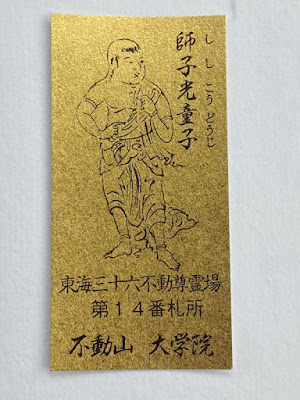 師子光童子
ししこうどうじ
東海三十六不動尊霊場
第14番札所
不動山 大学院